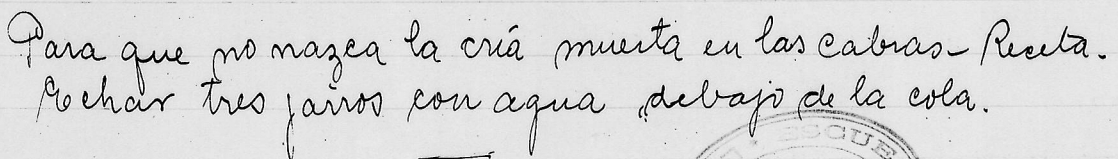 Para que no nazca la cría muerta en las cabras - Receta.
Echar tres jarros con agua debajo de la cola.
ESCUE